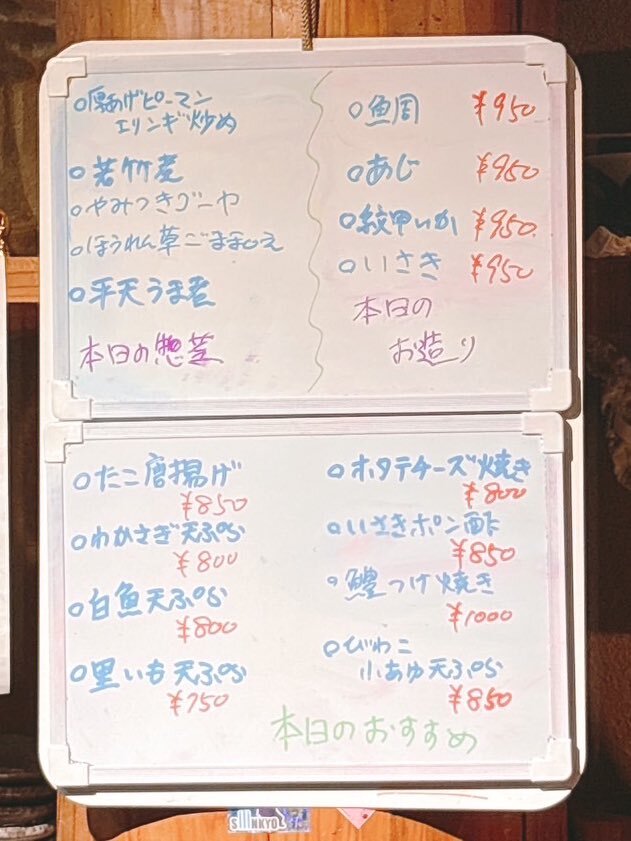 ○厚あげピーマン
エリンギ炒め
○若竹煮
○やみつきゴーヤ
○ほうれん草ごま和え
○平天うま煮
本日の惣菜
○鯛 ¥950
○あじ ¥950
○紋甲いか ¥950
○いさき ¥950
本日の
お造り
○たこ唐揚げ
¥850
○わかさぎ天ぷら
¥800
○白魚天ぷら
¥800
○里いも天ぷら
¥750
○ホタテチーズ焼き
¥800
○いさきポン酢
¥850
○鰹つけ焼き
¥1000
○びわこ
小あゆ天ぷら
¥850
本日のおすすめ